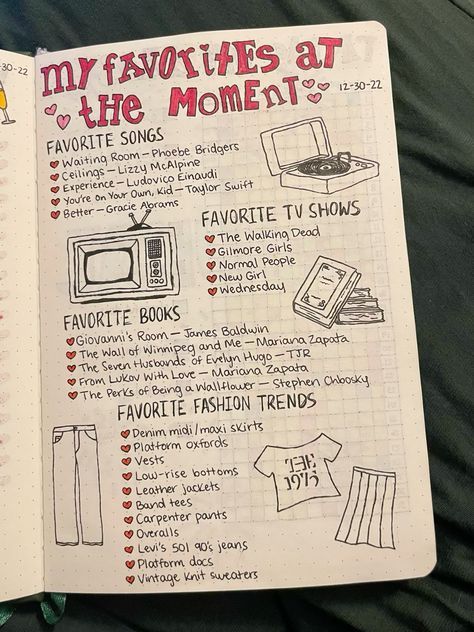 -30-22
My FAVORITES AT
the MOMENT
12-30-22
FAVORITE SONGS
Waiting Room — Phoebe Bridgers
Ceilings — Lizzy McAlpine
Experience — Ludovico Einaudi
You're on Your Own, Kid — Taylor Swift
Better — Gracie Abrams
FAVORITE TV SHOWS
The Walking Dead
Gilmore Girls
Normal People
New Girl
Wednesday
FAVORITE BOOKS
Giovanni's Room — James Baldwin
The Wall of Winnipeg and Me — Mariana Zapata
The Seven Husbands of Evelyn Hugo — TJR
From Lukov With Love — Mariana Zapata
The Perks of Being a Wallflower — Stephen Chbosky
FAVORITE FASHION TRENDS
Denim midi/maxi skirts
Platform oxfords
Vests
Low-rise bottoms
Leather jackets
Band tees
Carpenter pants
Overalls
Levi's 501 90's jeans
Platform docs
Vintage knit sweaters
THE
1975